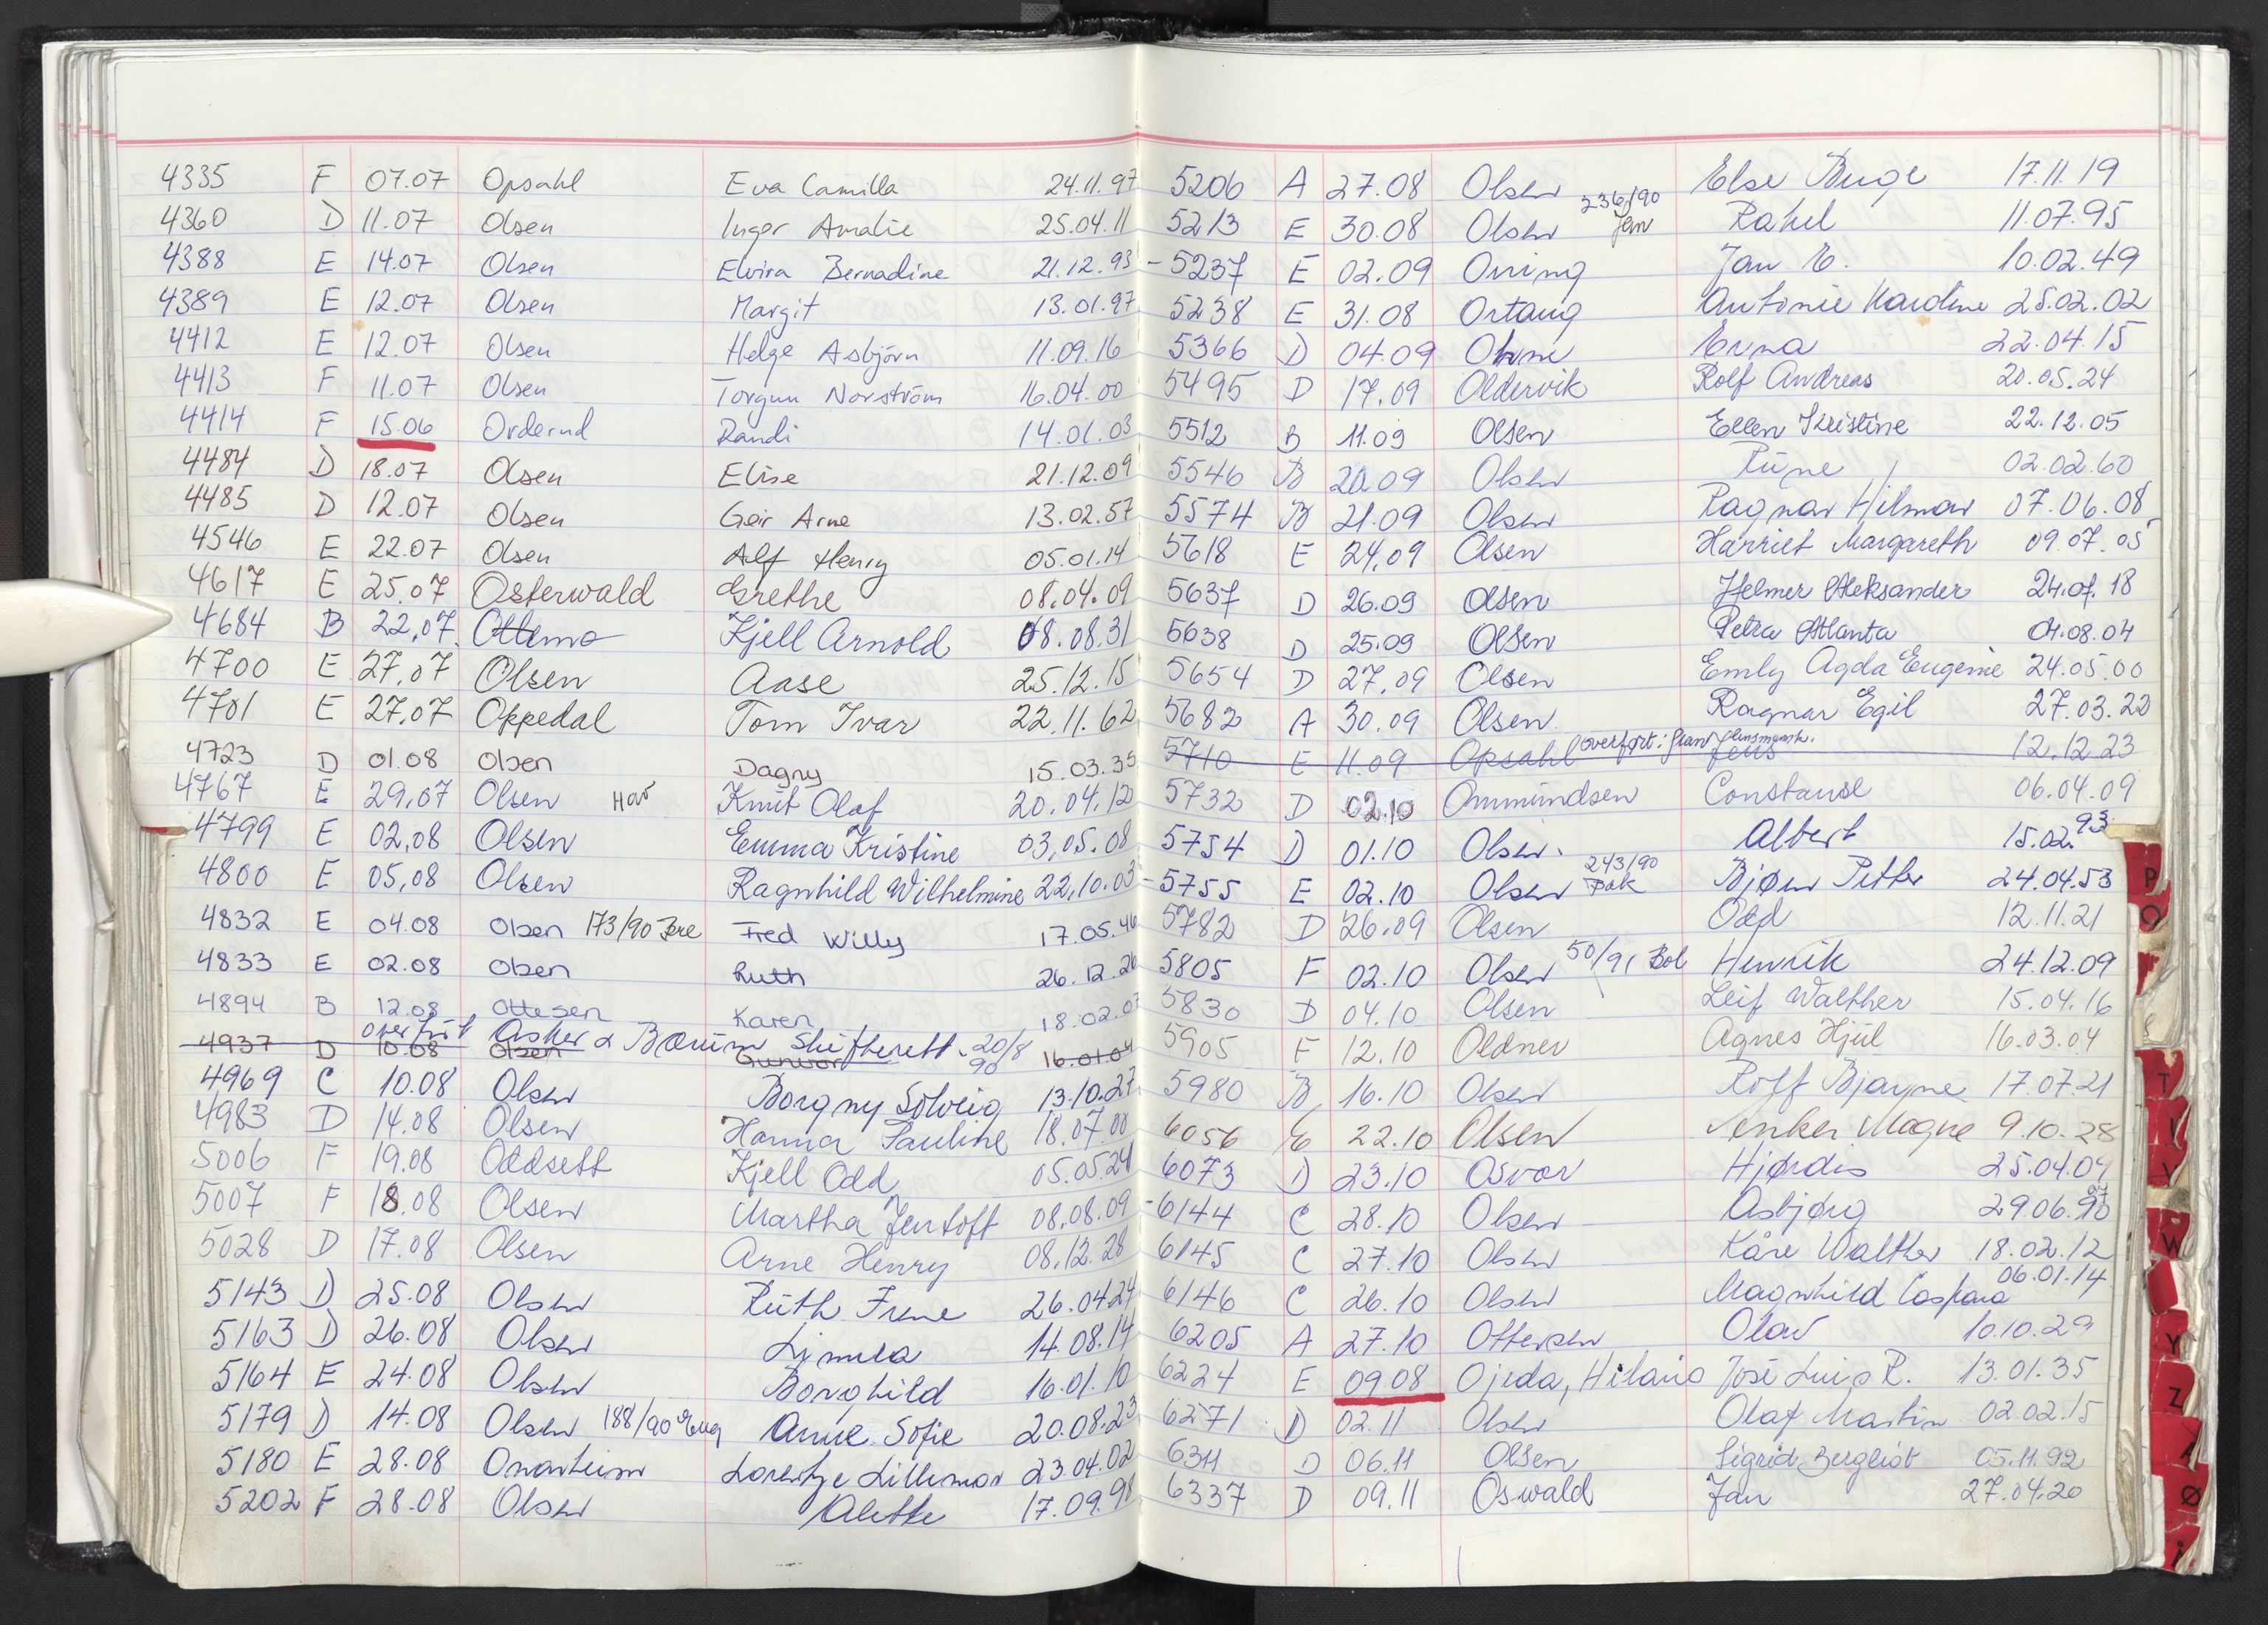 4335 F 07.07 Opsahl Eva Camilla 24.11.97
4360 D 11.07 Olsen Inger Amalie 25.04.11
4388 E 14.07 Olsen Elvira Bernadine 21.12.93
4389 E 12.07 Olsen Margit 13.01.97
4412 E 12.07 Olsen Helge Asbjørn 11.09.16
4413 F 11.07 Olsen Torgun Norström 16.04.00
4414 F 15.06 Orderud Randi 14.01.03
4484 D 18.07 Olsen Elise 21.12.09
4485 D 12.07 Olsen Geir Arne 13.02.57
4546 E 22.07 Olsen Alf Henry 05.01.14
4617 E 25.07 Osterwald Grethe 08.04.09
4684 B 22.07 Ottemo Kjell Arnold 08.08.31
4700 E 27.07 Olsen Aase 25.12.15
4701 E 27.07 Oppedal Tom Ivar 22.11.62
4723 D 01.08 Olsen Dagny 15.03.35
4767 E 29.07 Olsen Hov Knut Olaf 20.04.12
4799 E 02.08 Olsen Emma Kristine 03.05.08
4800 E 05.08 Olsen Ragnhild Wilhelmine 22.10.03
4832 E 04.08 Olsen 173/90 Fred Willy 17.05.46
4833 E 02.08 Olsen Ruth 26.12.26
4894 B 12.08 Ottesen Karen 18.02.07
overført Asker & Bærum Skifterett 20/8 90
4937 D 10.08 Olsen Gunvor 16.01.04
4969 C 10.08 Olsen Borgny Solveig 13.10.27
4983 D 14.08 Olsen Hanna Pauline 18.07.00
5006 F 19.08 Oddsett Kjell Odd 05.05.24
5007 F 18.08 Olsen Martha Jentoft 08.08.09
5028 D 17.08 Olsen Arne Henry 08.12.28
5143 D 25.08 Olsen Ruth Irene 26.04.24
5163 D 26.08 Olsen 14.08.14
5164 E 24.08 Olsen Borghild 16.01.10
5179 D 14.08 Olsen 188/90 Anne Sofie 20.08.23
5180 E 28.08 Onarheim Lorentze Lillemor 23.04.02
5202 F 28.08 Olsen Alette 17.09.98
5206 A 27.08 Olsen Else Buge 17.11.19
5213 E 30.08 Olsen 236/90 Jen Rakel 11.07.95
- 5237 E 02.09 Onning Jan E. 10.02.49
5238 E 31.08 Ortang Antonie Karoline 25.02.02
5366 D 04.09 Ohme Erna 22.04.15
5495 D 17.09 Oldervik Rolf Andreas 20.05.24
5512 B 11.09 Olsen Ellen Kristine 22.12.05
5546 B 20.09 Olsen Rune 02.02.60
5574 B 21.09 Olsen Ragnar Hilmar 07.06.08
5618 E 24.09 Olsen Harriet Margareth 09.07.05
5637 D 26.09 Olsen Helmer Aleksander 24.07.18
5638 D 25.09 Olsen Petra Atlanta 04.08.04
5654 D 27.09 Olsen Emly Agda Eugenie 24.05.00
5682 A 30.09 Olsen Ragnar Egil 27.03.22
5710 E 11.09 Opsahl overført: Jens 12.12.23
5732 D 02.10 Ommundsen Constanse 06.04.09
5754 D 01.10 Olsen Albert 15.02.93
- 5755 E 02.10 Olsen 243/90 Bak Bjørn Petter 24.04.53
5782 D 26.09 Olsen Odd 12.11.21
5805 F 02.10 Olsen 50/91 Bol Henrik 24.12.09
5830 D 04.10 Olsen Leif Walther 15.04.16
5905 F 12.10 Oldner Agnes Hjul 16.03.04
5980 B 16.10 Olsen Rolf Bjarne 17.07.21
6056 E 22.10 Olsen Anker Magne 9.10.28
6073 D 23.10 Osvor Hjørdis 25.04.04
- 6144 C 28.10 Olsen Asbjørg 29.06.97
6145 C 27.10 Olsen Kåre Walther 18.02.12
6146 C 26.10 Olsen Magnhild Caspara 06.01.14
6205 A 27.10 Ottersen Olav 10.10.29
6224 E 09.08 Ojeda, Hilario José Luis R. 13.01.35
6271 D 02.11 Olsen Olaf Martin 02.02.15
6311 D 06.11 Olsen Sigrid Bergliot 05.11.92
6337 D 09.11 Oswald Jan 27.04.20
P
O
T
V
W
Y
Z
Ø